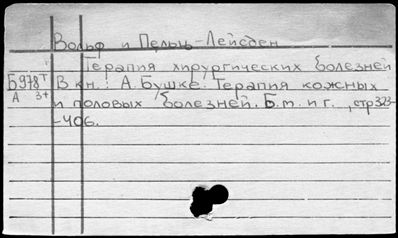 Вольф и Пельц-Лейсден
Терапия хирургических болезней
Б978т В кн.: А. Бушке. Терапия кожных
А 3+ и половых болезней. Б.м. и г. , стр 323-
-406.